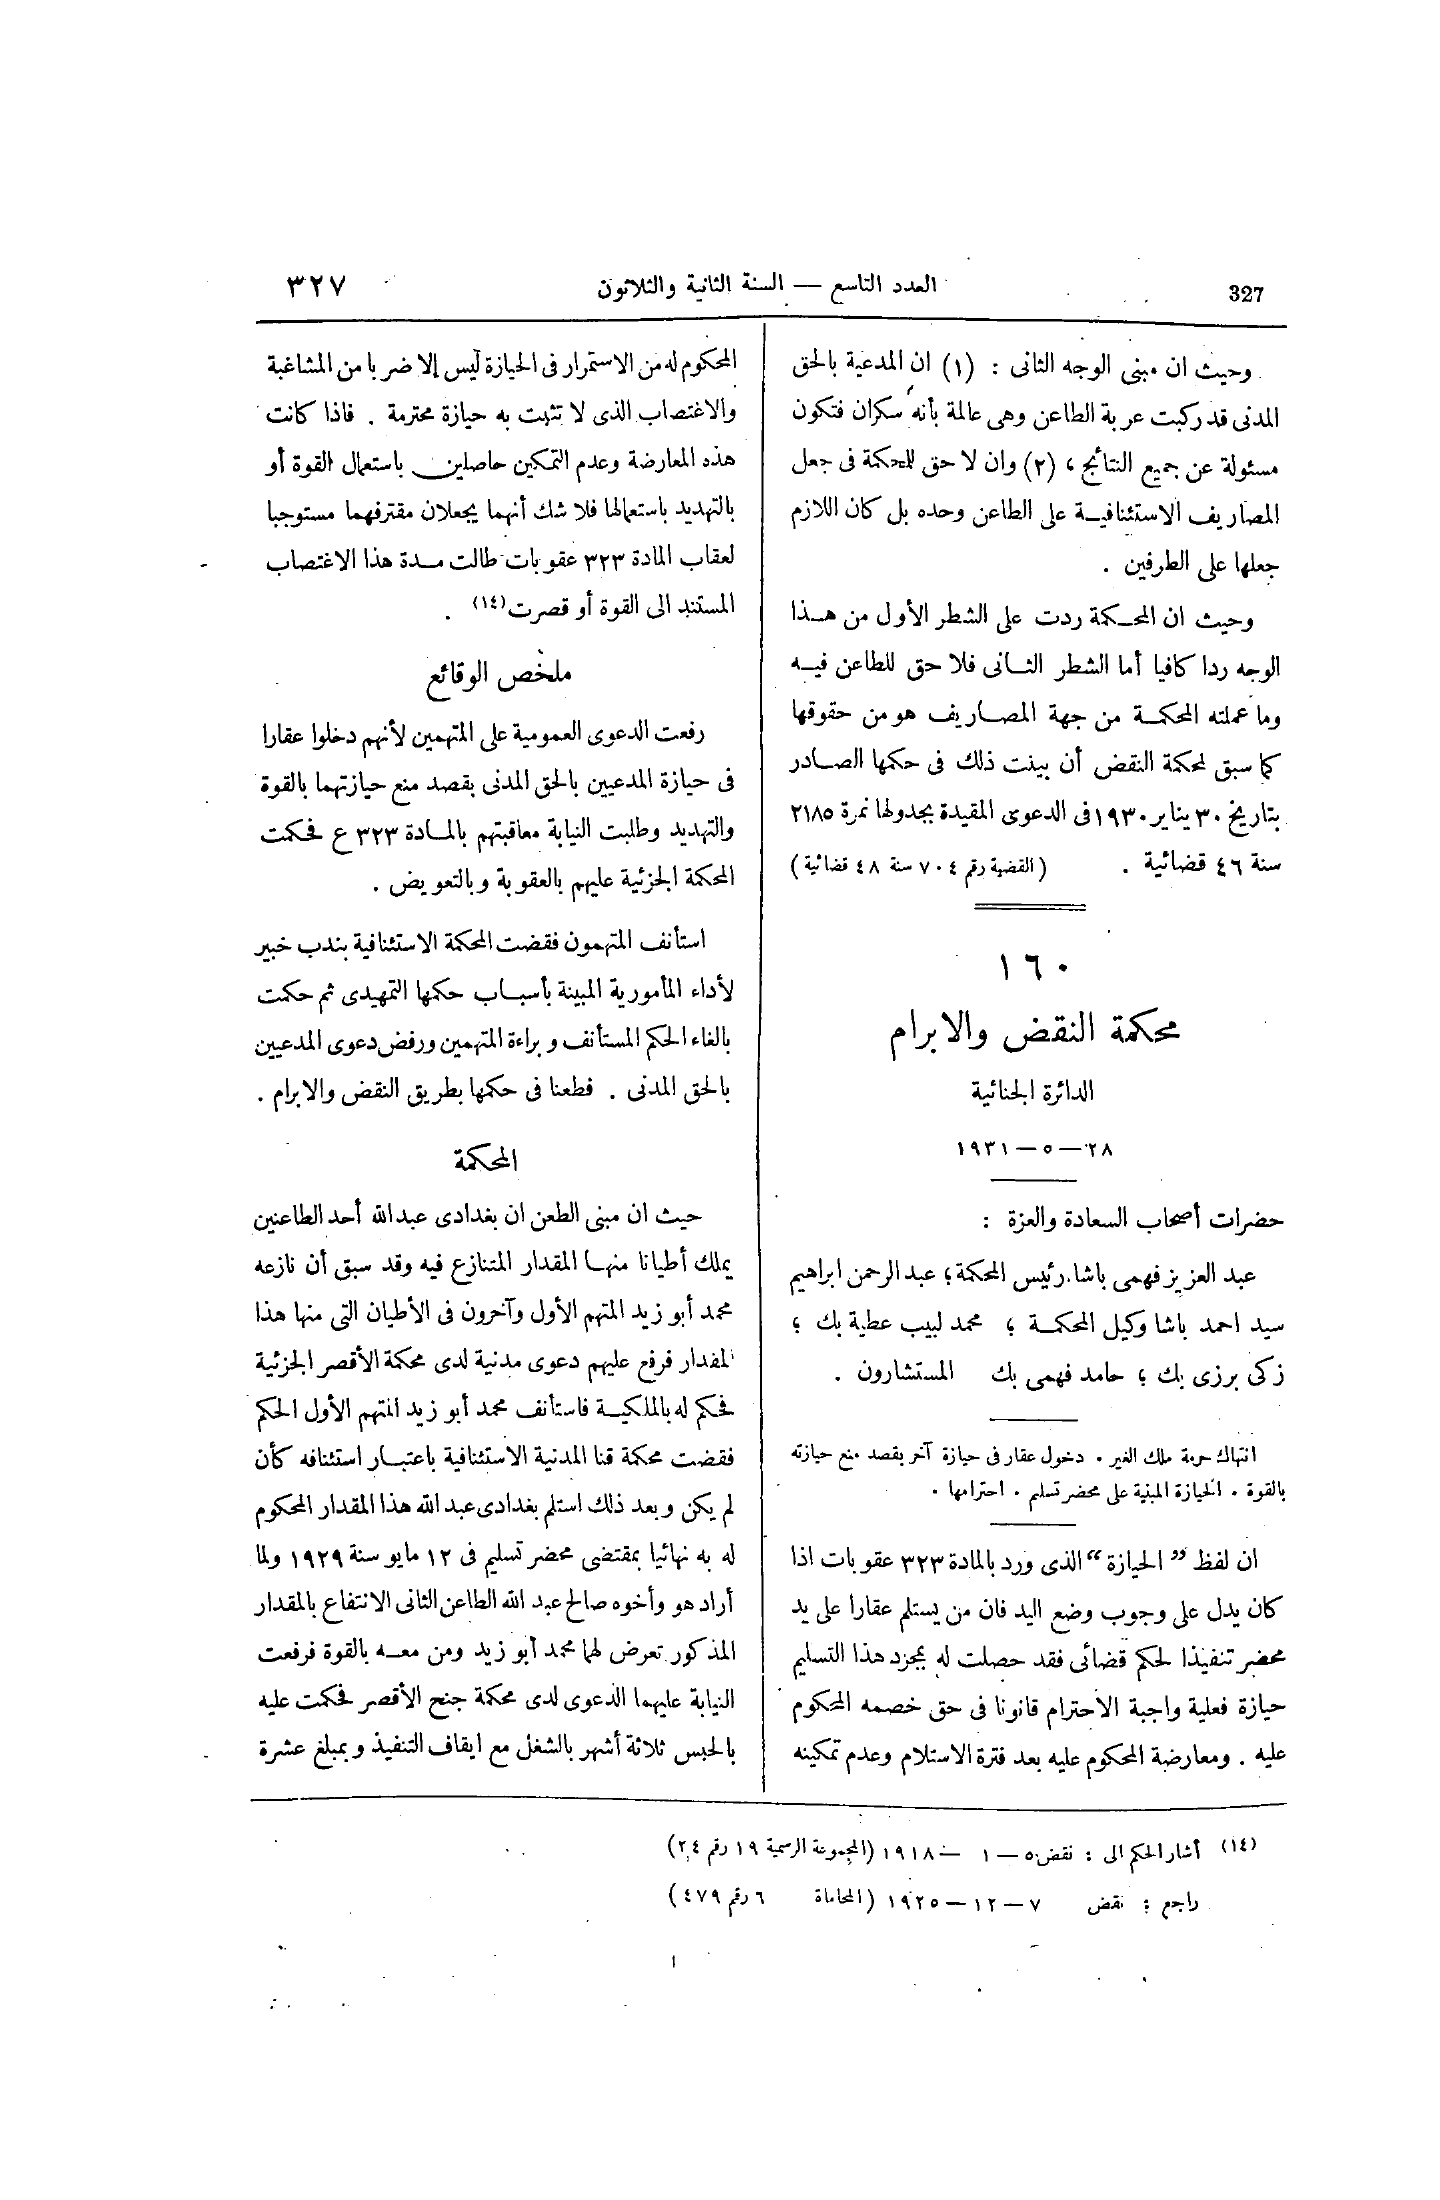 327
العدد التاسع — السنة الثانية والثلاثون
٣٢٧
وحيث ان مبنى الوجه الثانى : (١) ان المدعية بالحق
المدنى قد ركبت عربة الطاعن وهى عالمة بأنه سكران فتكون
مسئولة عن جميع النتائج ، (٢) وان لا حق للمحكمة فى جعل
المصاريف الاستئنافية على الطاعن وحده بل كان اللازم
جعلها على الطرفين .
وحيث ان المحكمة ردت على الشطر الأول من هذا
الوجه ردا كافيا أما الشطر الثانى فلا حق للطاعن فيه
وما عملته المحكمة من جهة المصاريف هو من حقوقها
كما سبق لمحكمة النقض أن بينت ذلك فى حكمها الصادر
بتاريخ ٣٠ يناير ١٩٣٠ فى الدعوى المقيدة بجدولها نمرة ٢١٨٥
سنة ٤٦ قضائية . (القضية رقم ٧٠٤ سنة ٤٨ قضائية)
١٦٠
محكمة النقض والابرام
الدائرة الجنائية
٢٨ — ٥ — ١٩٣١
حضرات أصحاب السعادة والعزة :
عبد العزيز فهمى باشا رئيس المحكمة ؛ عبد الرحمن ابراهيم
سيد احمد باشا وكيل المحكمة ؛ محمد لبيب عطية بك ؛
زكى برزى بك ؛ حامد فهمى بك المستشارون .
انتهاك حرمة ملك الغير . دخول عقار فى حيازة آخر بقصد منع حيازته
بالقوة . الحيازة المبنية على محضر تسليم . احترامها .
ان لفظ ”الحيازة“ الذى ورد بالمادة ٣٢٣ عقوبات اذا
كان يدل على وجوب وضع اليد فان من يستلم عقارا على يد
محضر تنفيذا لحكم قضائى فقد حصلت له بمجرد هذا التسليم
حيازة فعلية واجبة الاحترام قانونا فى حق خصمه المحكوم
عليه . ومعارضة المحكوم عليه بعد فترة الاستلام وعدم تمكينه
المحكوم له من الاستمرار فى الحيازة ليس إلا ضربا من المشاغبة
والاغتصاب الذى لا تثبت به حيازة محترمة . فاذا كانت
هذه المعارضة وعدم التمكين حاصلين باستعمال القوة أو
بالتهديد باستعمالها فلا شك أنهما يجعلان مقترفهما مستوجبا
لعقاب المادة ٣٢٣ عقوبات طالت مدة هذا الاغتصاب
المستند الى القوة أو قصرت (١٤) .
ملخص الوقائع
رفعت الدعوى العمومية على المتهمين لأنهم دخلوا عقارا
فى حيازة المدعيين بالحق المدنى بقصد منع حيازتهما بالقوة
والتهديد وطلبت النيابة معاقبتهم بالمادة ٣٢٣ ع فحكمت
المحكمة الجزئية عليهم بالعقوبة وبالتعويض .
استأنف المتهمون فقضت المحكمة الاستئنافية بندب خبير
لأداء المأمورية المبينة بأسباب حكمها التمهيدى ثم حكمت
بالغاء الحكم المستأنف وبراءة المتهمين ورفض دعوى المدعيين
بالحق المدنى . فطعنا فى حكمها بطريق النقض والابرام .
المحكمة
حيث ان مبنى الطعن ان بغدادى عبد الله أحد الطاعنين
يملك أطيانا منها المقدار المتنازع فيه وقد سبق أن نازعه
محمد أبو زيد المتهم الأول وآخرون فى الأطيان التى منها هذا
المقدار فرفع عليهم دعوى مدنية لدى محكمة الأقصر الجزئية
فحكم له بالملكية فاستأنف محمد أبو زيد المتهم الأول الحكم
فقضت محكمة قنا المدنية الاستئنافية باعتبار استئنافه كأن
لم يكن وبعد ذلك استلم بغدادى عبد الله هذا المقدار المحكوم
له به نهائيا بمقتضى محضر تسليم فى ١٢ مايو سنة ١٩٢٩ ولما
أراد هو وأخوه صالح عبد الله الطاعن الثانى الانتفاع بالمقدار
المذكور تعرض لهما محمد أبو زيد ومن معه بالقوة فرفعت
النيابة عليهما الدعوى لدى محكمة جنح الأقصر فحكمت عليه
بالحبس ثلاثة أشهر بالشغل مع ايقاف التنفيذ وبمبلغ عشرة
(١٤) أشار الحكم الى : نقض ٥ — ١ — ١٩١٨ (المجموعة الرسمية ١٩ رقم ٢٤)
راجع : نقض ٧ — ١٢ — ١٩٢٥ (المحاماة ٦ رقم ٤٧٩)